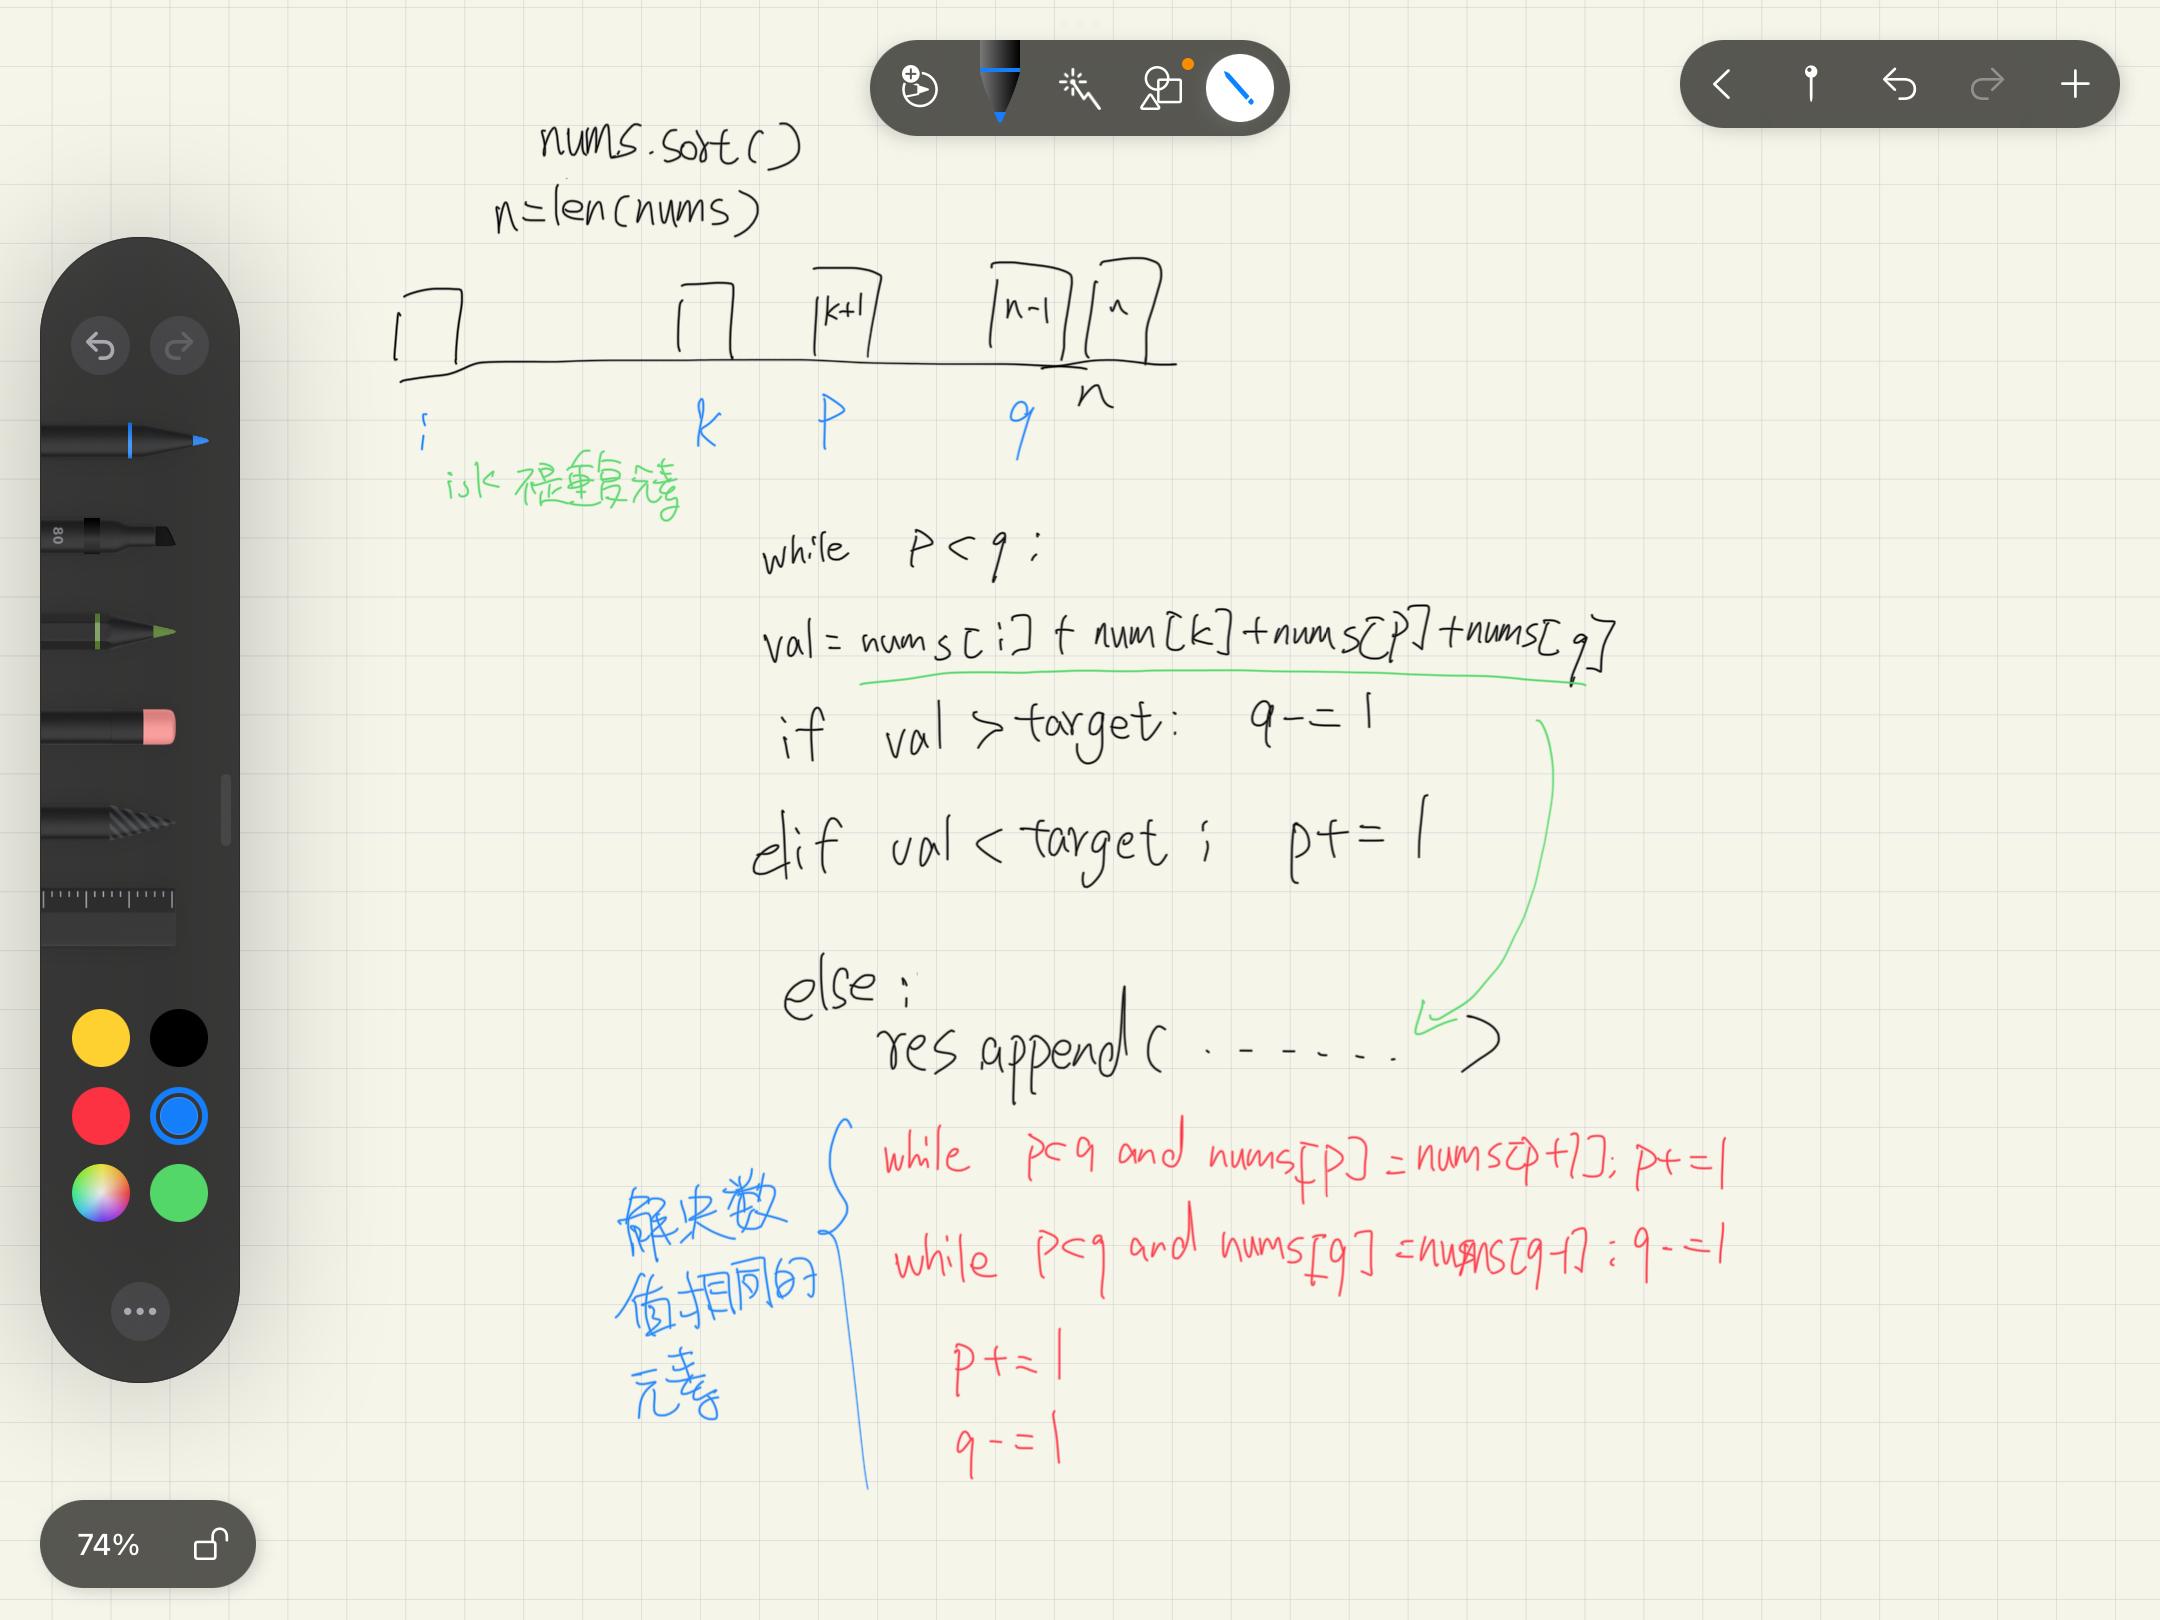 nums.sort()
n=len(nums)
k+1 n-1 n
i k p q n
i,k 不是重复元素
while p<q:
val=nums[i]+num[k]+nums[p]+nums[q]
if val>target: q-=1
elif val<target: p+=1
else:
res.append(.------)
while p<q and nums[p]=nums[p+1]: p+=1
while p<q and nums[q]=nums[q-1]: q-=1
p+=1
q-=1
解决数
值相同的
元素
80
74%